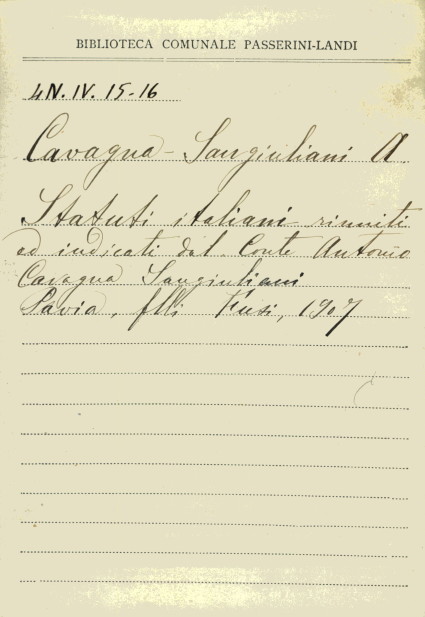 BIBLIOTECA COMUNALE PASSERINI-LANDI
4N. IV. 15-16
Cavagna - Sangiuliani A.
Statuti italiani riuniti
ed indicati dal Conte Antonio
Cavagna Sangiuliani
Pavia, flli Fusi, 1907